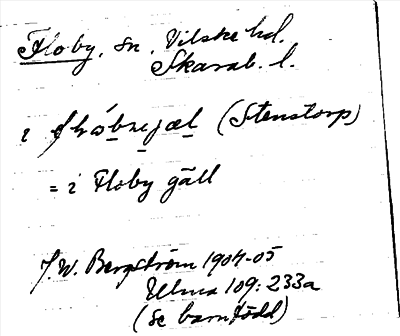 Floby, sn, Vilske hd.
Skarab. l.
i (Stenstorp)
= i Floby gäll
J. W. Bergström 1904-05
Ulma 109: 233a
(Se barnfödd)